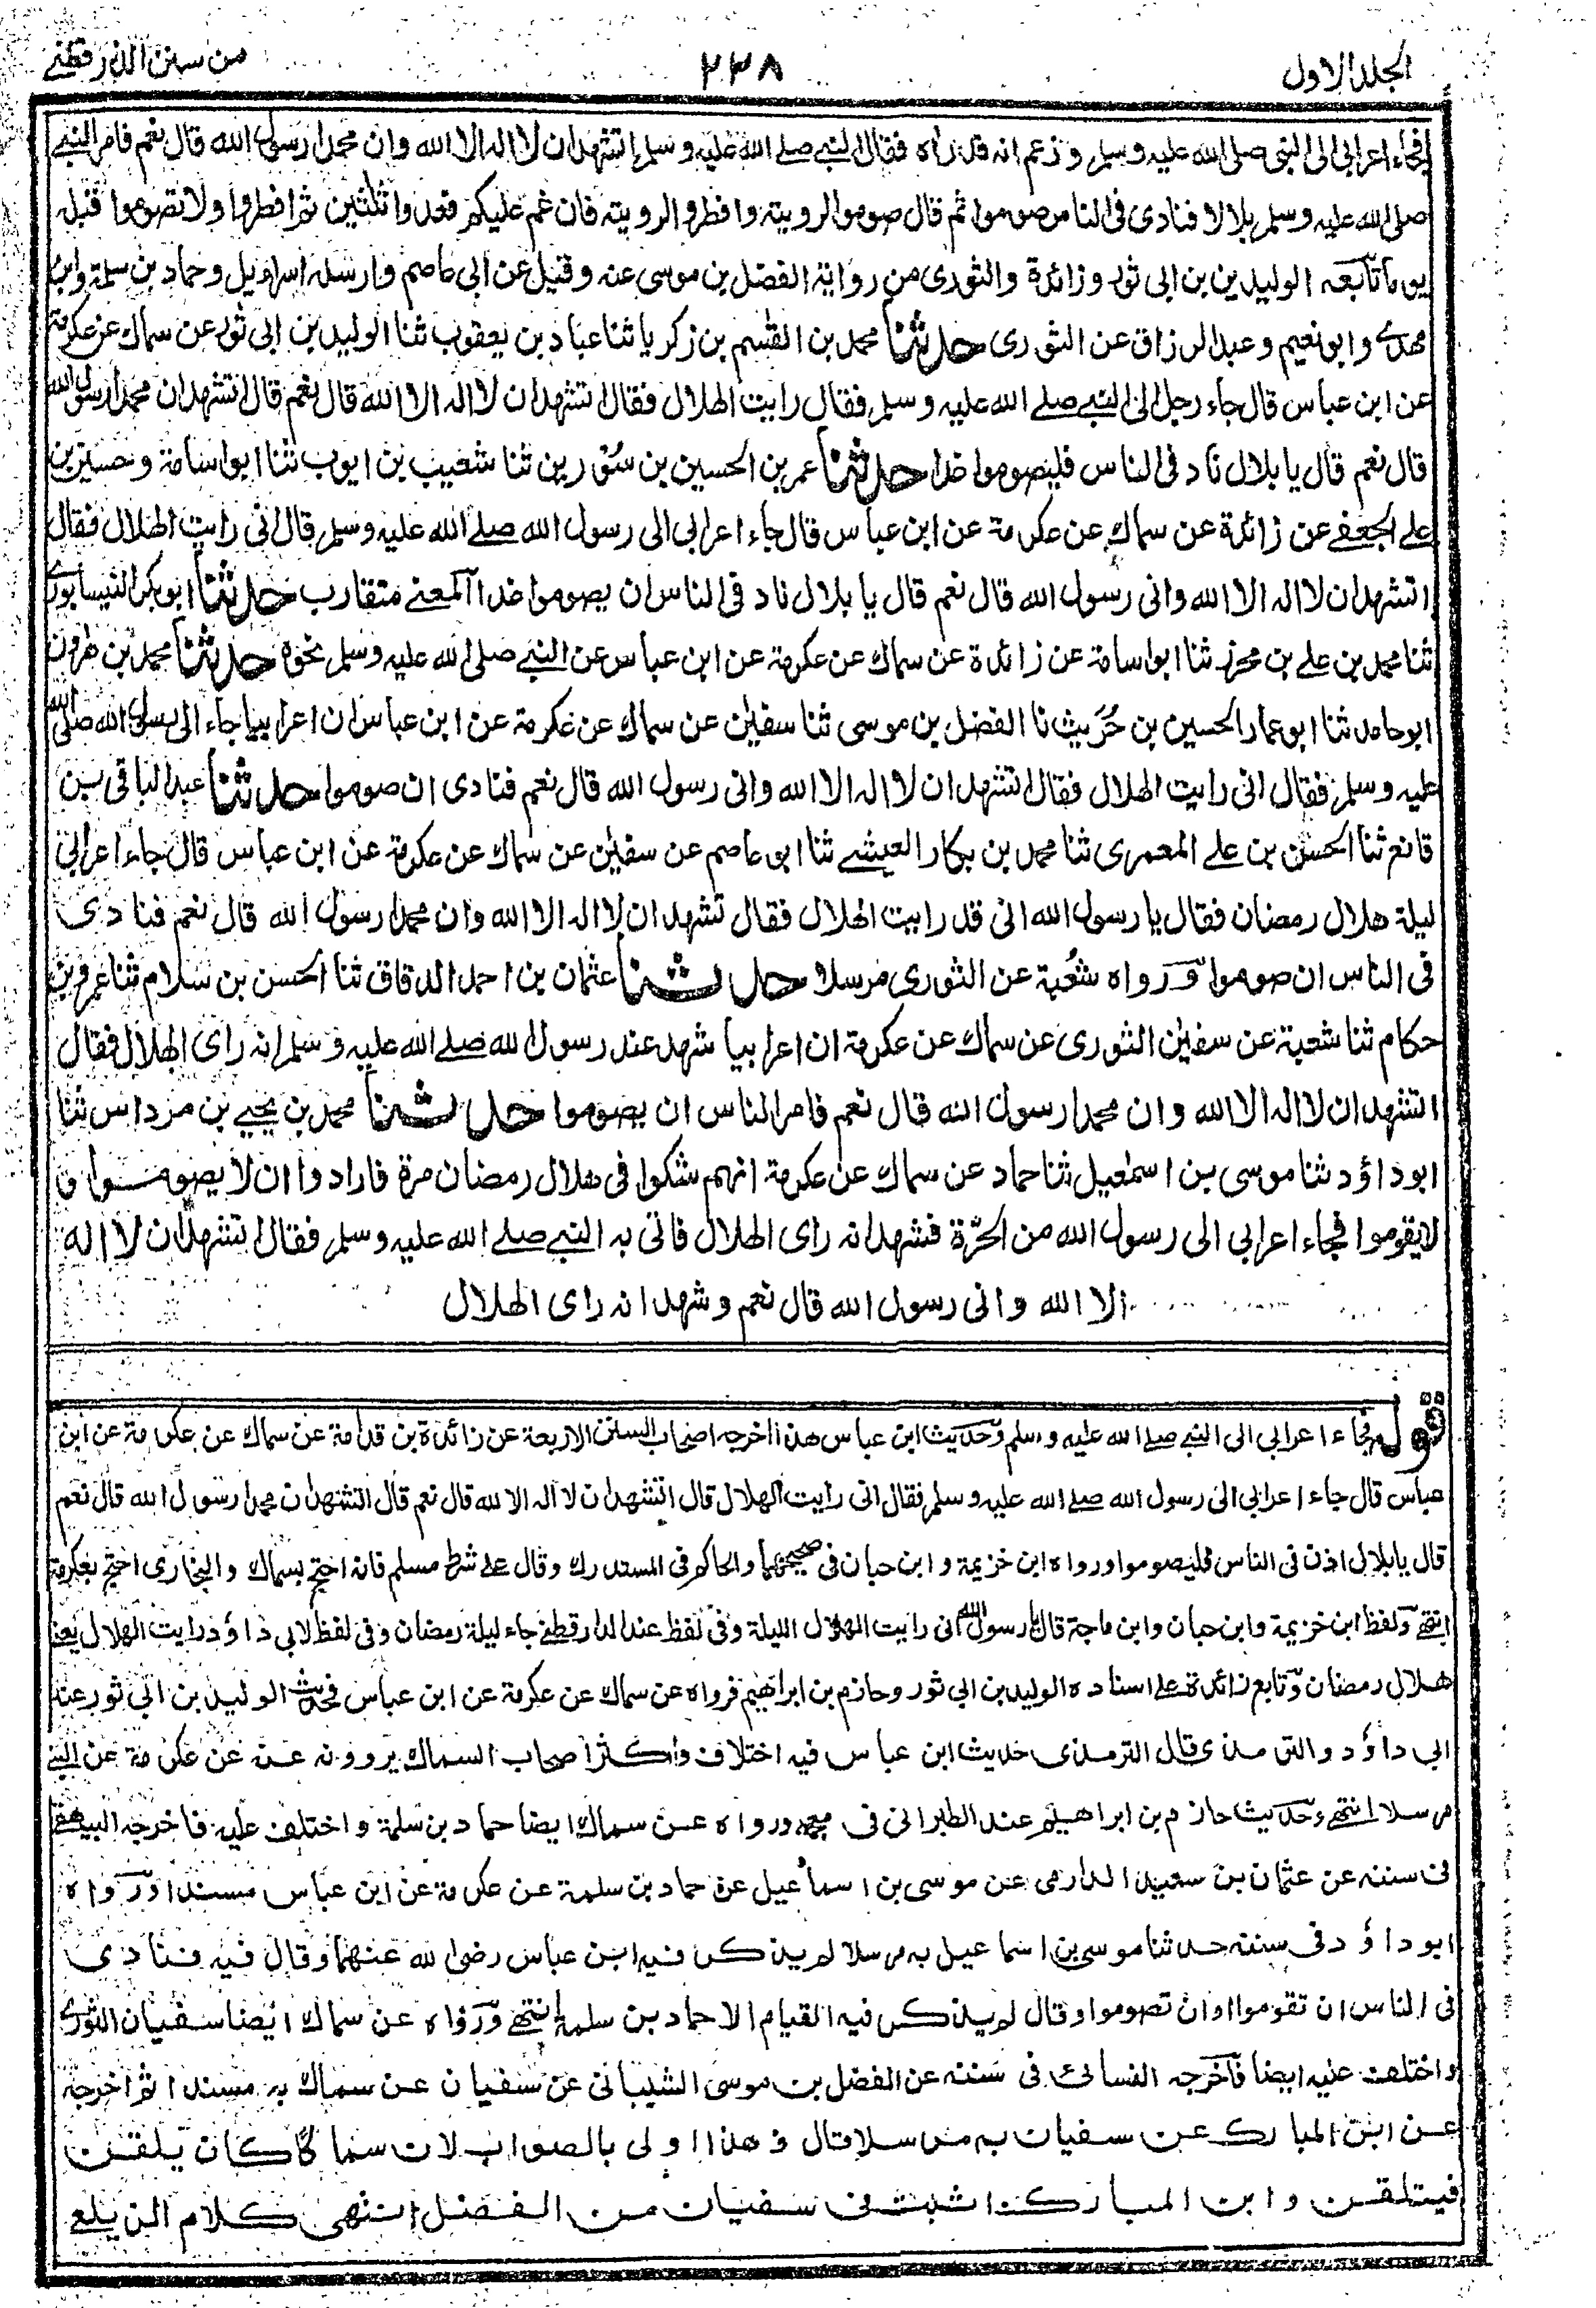 الجلد الاول
٢٣٨
من سنن الدارقطني
فجاء اعرابي الى النبي صلى الله عليه وسلم وزعم انه قد راه فقال النبي صلى الله عليه وسلم اتشهد ان لا اله الا الله وان محمدا رسول الله قال نعم فامر النبي
صلى الله عليه وسلم بلالا فنادى في الناس صوموا ثم قال صوموا لرويته وافطروا لرويته فان غم عليكم فعدوا ثلثين ثم افطروا ولا تصوموا قبله
يوما تابعه الوليد بن بن ابي ثور وزائدة والثوري من رواية الفضل بن موسى عنه وقيل عن ابي عاصم وارسله اسرائيل وحماد بن سلمة وابن
مهدي وابو نعيم وعبد الرزاق عن الثوري حدثنا محمد بن القسم بن زكريا ثنا عباد بن يعقوب ثنا الوليد بن ابي ثور عن سماك عن عكرمة
عن ابن عباس قال جاء رجل الى النبي صلى الله عليه وسلم فقال رايت الهلال فقال اتشهد ان لا اله الا الله قال نعم قال اتشهد ان محمدا رسول الله
قال نعم قال يا بلال ناد في الناس فليصوموا غدا حدثنا عمر بن الحسين بن سُوْرين ثنا شعيب بن ايوب ثنا ابو اسامة وحسين بن
علي الجعفي عن زائدة عن سماك عن عكرمة عن ابن عباس قال جاء اعرابي الى رسول الله صلى الله عليه وسلم قال اني رايت الهلال فقال
اتشهد ان لا اله الا الله واني رسول الله قال نعم قال يا بلال ناد في الناس ان يصوموا غدا المعنى متقارب حدثنا ابو بكر النيسابوري
ثنا محمد بن علي بن محرز ثنا ابو اسامة عن زائدة عن سماك عن عكرمة عن ابن عباس عن النبي صلى الله عليه وسلم نحوه حدثنا محمد بن هرون
ابو حامد ثنا ابو عمار الحسين بن حُرَيث نا الفضل بن موسى ثنا سفين عن سماك عن عكرمة عن ابن عباس ان اعرابيا جاء الى رسول الله صلى الله
عليه وسلم فقال اني رايت الهلال فقال اتشهد ان لا اله الا الله واني رسول الله قال نعم فنادى ان صوموا حدثنا عبد الباقي بن
قانع ثنا الحسن بن علي المعمري ثنا محمد بن بكار العيشي ثنا ابو عاصم عن سفين عن سماك عن عكرمة عن ابن عباس قال جاء اعرابي
ليلة هلال رمضان فقال يا رسول الله اني قد رايت الهلال فقال تشهد ان لا اله الا الله وان محمدا رسول الله قال نعم فنادى
في الناس ان صوموا ورواه شعبة عن الثوري مرسلا حدثنا عثمان بن احمد الدقاق ثنا الحسن بن سلام ثنا عمرو بن
حكام ثنا شعبة عن سفين الثوري عن سماك عن عكرمة ان اعرابيا شهد عند رسول الله صلى الله عليه وسلم انه راى الهلال فقال
اتشهد ان لا اله الا الله وان محمدا رسول الله قال نعم فامر الناس ان يصوموا حدثنا محمد بن يحيى بن مرداس ثنا
ابو داؤد ثنا موسى بن اسمعيل ثنا حماد عن سماك عن عكرمة انهم شكوا في هلال رمضان مرة فارادوا ان لا يصوموا و
لا يقوموا فجاء اعرابي الى رسول الله من الحَرّة فشهد انه راى الهلال فاتى به النبي صلى الله عليه وسلم فقال اتشهد ان لا اله
الا الله واني رسول الله قال نعم وشهد انه راى الهلال
قوله فجاء اعرابي الى النبي صلى الله عليه وسلم وحديث ابن عباس هذا اخرجه اصحاب السنن الاربعة عن زائدة بن قدامة عن سماك عن عكرمة عن ابن
عباس قال جاء اعرابي الى رسول الله صلى الله عليه وسلم فقال اني رايت الهلال قال اتشهد ان لا اله الا الله قال نعم قال اتشهد ان محمدا رسول الله قال نعم
قال يا بلال اذن في الناس فليصوموا ورواه ابن خزيمة وابن حبان في صحيحهما والحاكم في المستدرك وقال على شرط مسلم فانه احتج بسماك والبخاري احتج بعكرمة
انتهى ولفظ ابن خزيمة وابن حبان وابن ماجة قال يا رسول الله اني رايت الهلال الليلة وفي لفظ عند الدارقطني جاء ليلة رمضان وفي لفظ لابي داؤد رايت الهلال يعني
هلال رمضان وتابع زائدة على اسناده الوليد بن ابي ثور وحازم بن ابراهيم فرواه عن سماك عن عكرمة عن ابن عباس فحديث الوليد بن ابي ثور عند
ابي داؤد والترمذي قال الترمذي حديث ابن عباس فيه اختلاف واكثر اصحاب السماك يروونه عنه عن عكرمة عن النبي
مرسلا انتهى وحديث حازم بن ابراهيم عند الطبراني في معجمه ورواه عن سماك ايضا حماد بن سلمة واختلف عليه فاخرجه البيهقي
في سننه عن عثمان بن سعيد الدارمي عن موسى بن اسماعيل عن حماد بن سلمة عن عكرمة عن ابن عباس مسندا ورواه
ابو داؤد في سننه حدثنا موسى بن اسماعيل به مرسلا لم يذكر فيه ابن عباس رضي الله عنهما وقال فيه فنادى
في الناس ان تقوموا وان تصوموا وقال لم يذكر فيه القيام الا حماد بن سلمة انتهى ورواه عن سماك ايضا سفيان الثوري
واختلف عليه ايضا فاخرجه النسائي في سننه عن الفضل بن موسى الشيباني عن سفيان عن سماك به مسندا ثم اخرجه
عن ابن المبارك عن سفيان به مرسلا قال وهذا اولى بالصواب لان سماكا كان يلقن
فيتلقن وابن المبارك اثبت في سفيان من الفضل انتهى كلام الزيلعي